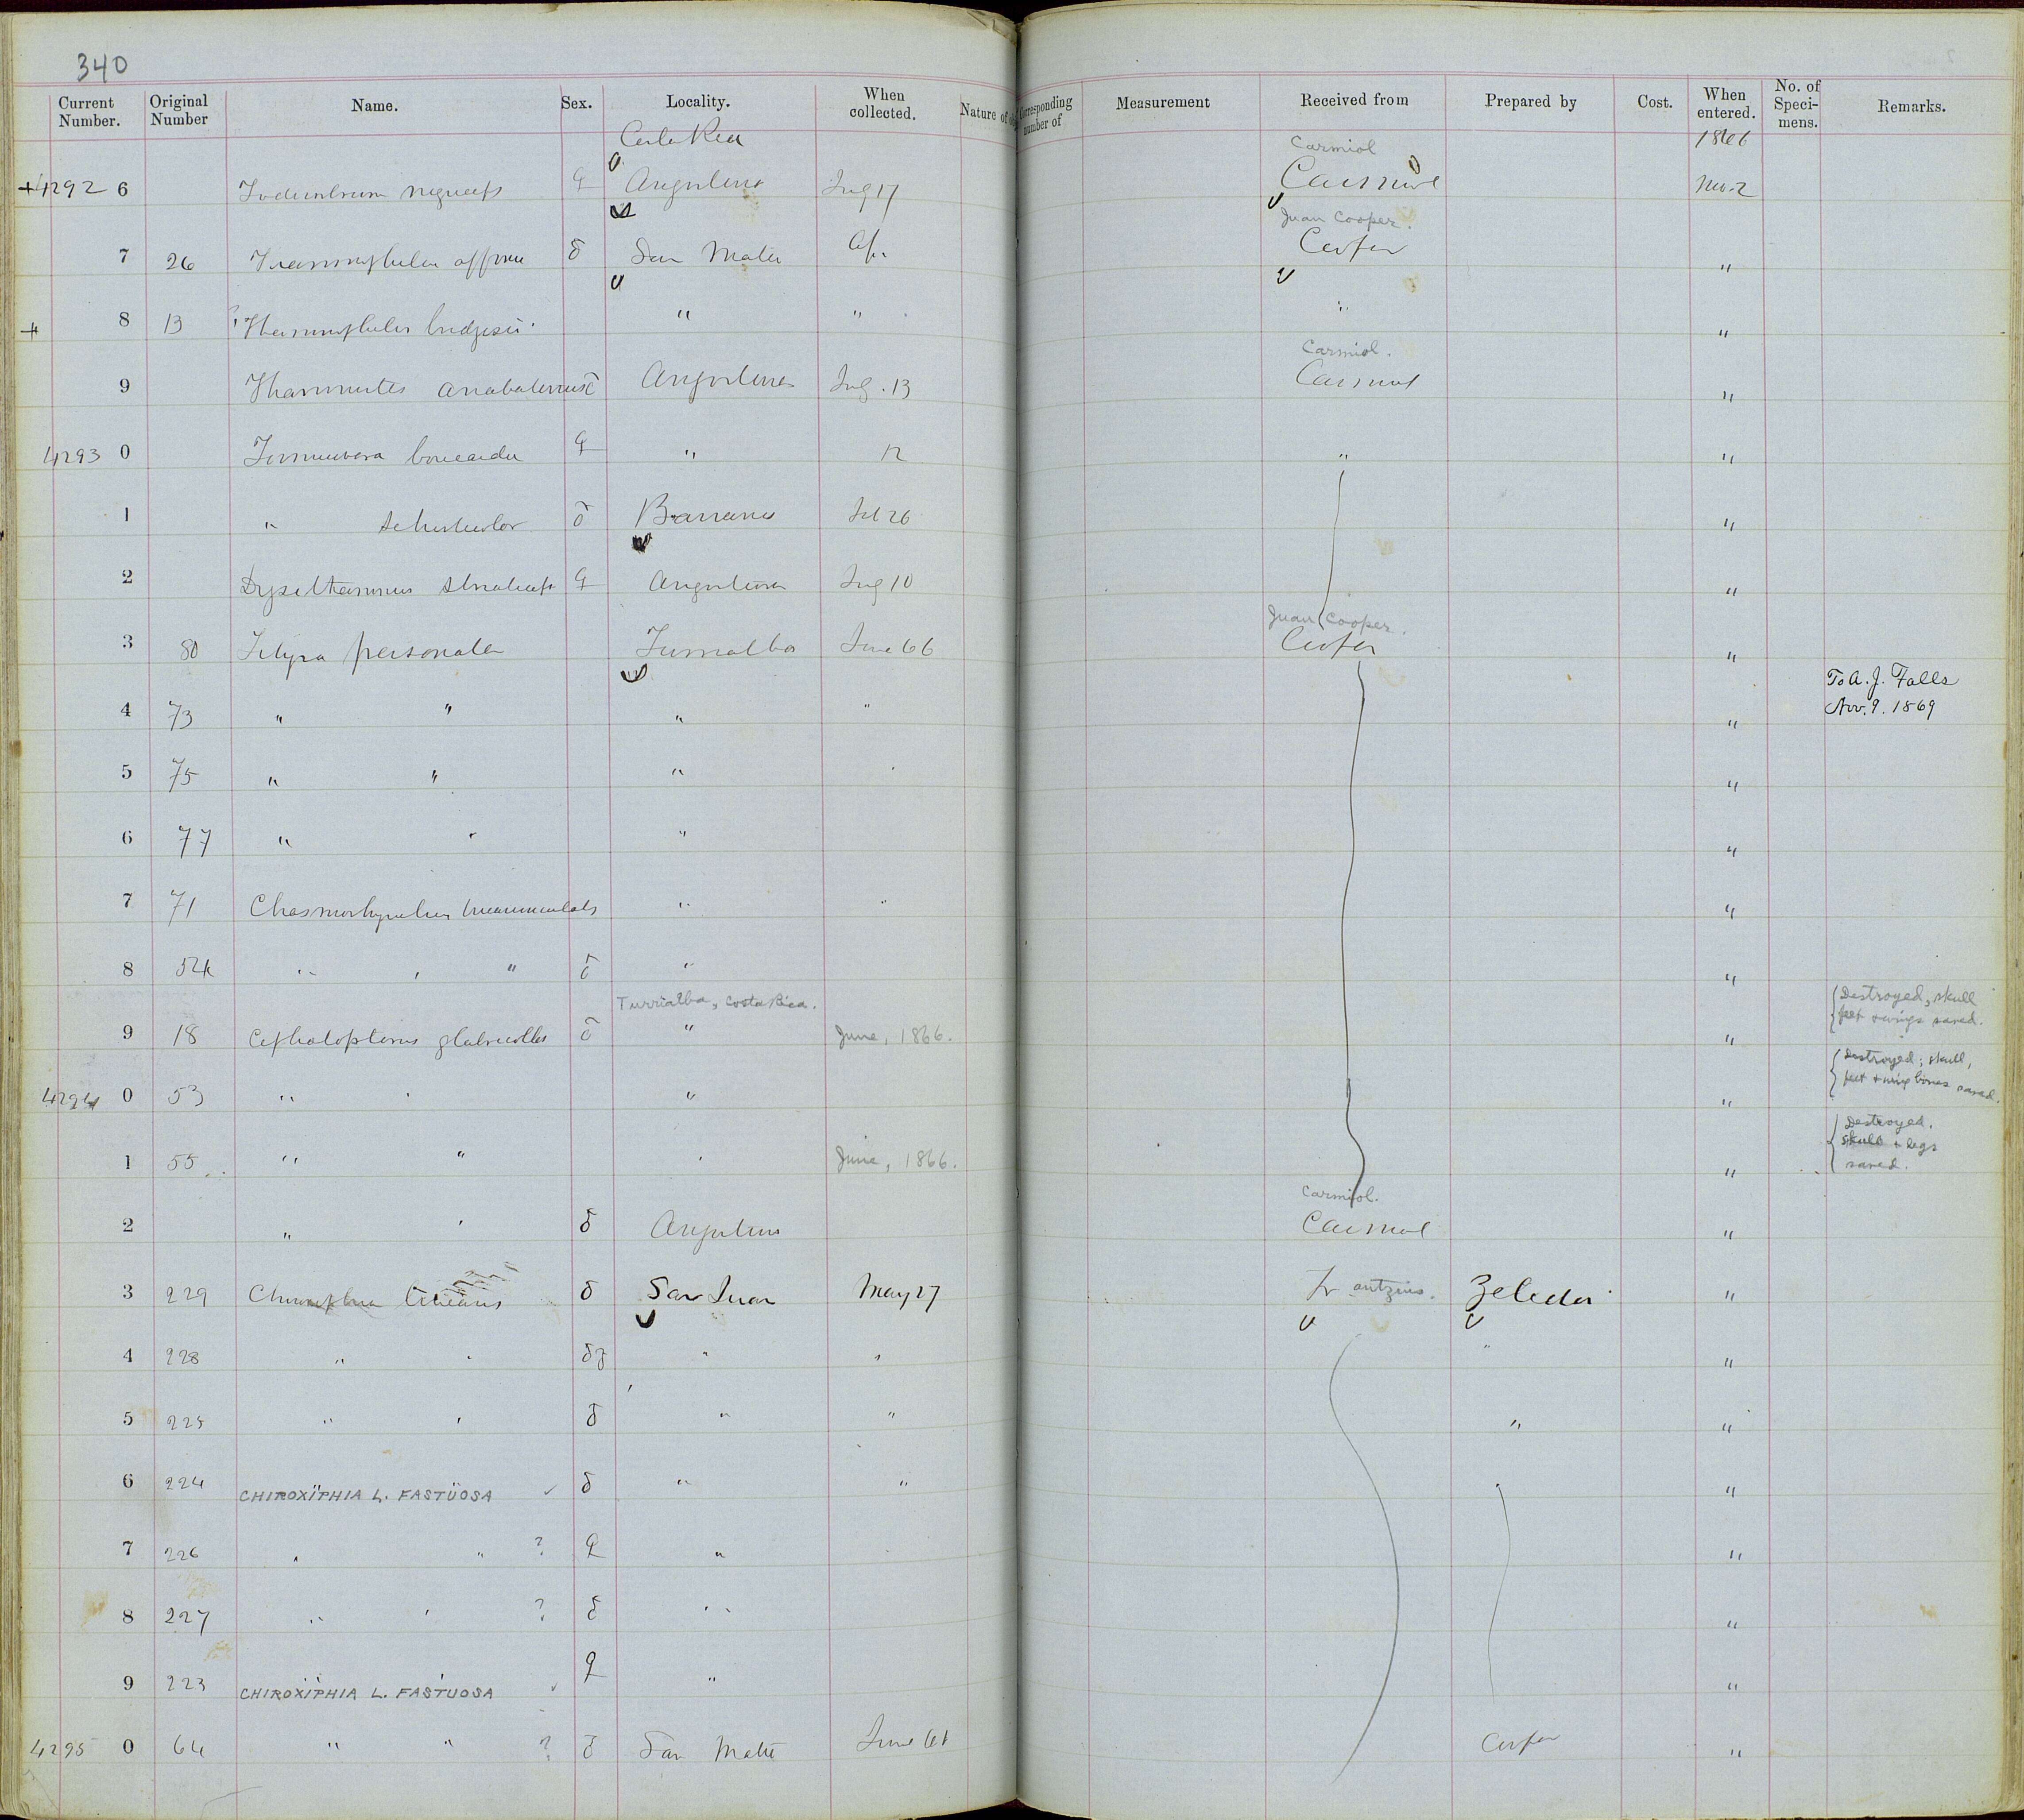 340
Current Number. Original Number Name. Sex. Locality. When collected. Nature of Corresponding number of Measurement Received from Prepared by Cost. When entered. No. of Speci-mens. Remarks.
Costa Rica Carmiol 1866
+4292 6 ♀ Angostura 17 Carmiol Nov. 2
Juan Cooper.
7 26 ♂ San Mateo Ap. Cooper "
+ 8 13 ? Thamnophilus bridgesii " " " "
Carmiol.
9 Angostura 13 Carmiol "
4293 0 ♀ " 12 " "
1 " ♂ Barranca 26 "
2 Dysithamnus striaticeps ♀ Angostura 10 "
Juan Cooper.
3 80 Tityra personata Turrialba June 66 Cooper "
4 73 " " " " " To A. J. Falls Nov. 9. 1869
5 75 " " " " "
6 77 " " " "
7 71 Chasmorhynchus tricarunculatus " " "
8 " " " ♂ " "
Turrialba, Costa Rica.
9 18 Cephalopterus glabricollis ♂ " June, 1866. " Destroyed, skull feet & wings saved.
4294 0 53 " " " " Destroyed; skull, feet & wing bones saved.
1 55 " " " June, 1866. " Destroyed. skull & legs saved.
Carmiol.
2 " " ♂ Angostura Carmiol "
3 229 ♂ San Juan May 27 Frantzius. Zeledon "
4 228 " " ♂ " " " "
5 225 " " ♂ " " " "
6 224 CHIROXIPHIA L. FASTUOSA ✓ ♂ " " " "
7 226 " " ? ♀ " "
8 227 " " ? ♂ " "
9 223 CHIROXIPHIA L. FASTUOSA ✓ ♀ " "
4295 0 64 " " ? ♂ San Mateo June Cooper "